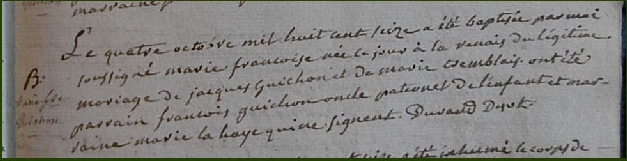 Le quatre octobre mil huit cent seize a été baptisée par moi
B. soussigné marie francoise née ce jour à la du légitime
marie fse mariage de jacques Guichon et de marie tremblais ont été
Guichon parrain francois guichon oncle paternel de l'enfant et mar-
raine marie la haye qui ne signent. Durand Dest.
seize a été inhumé le corps de